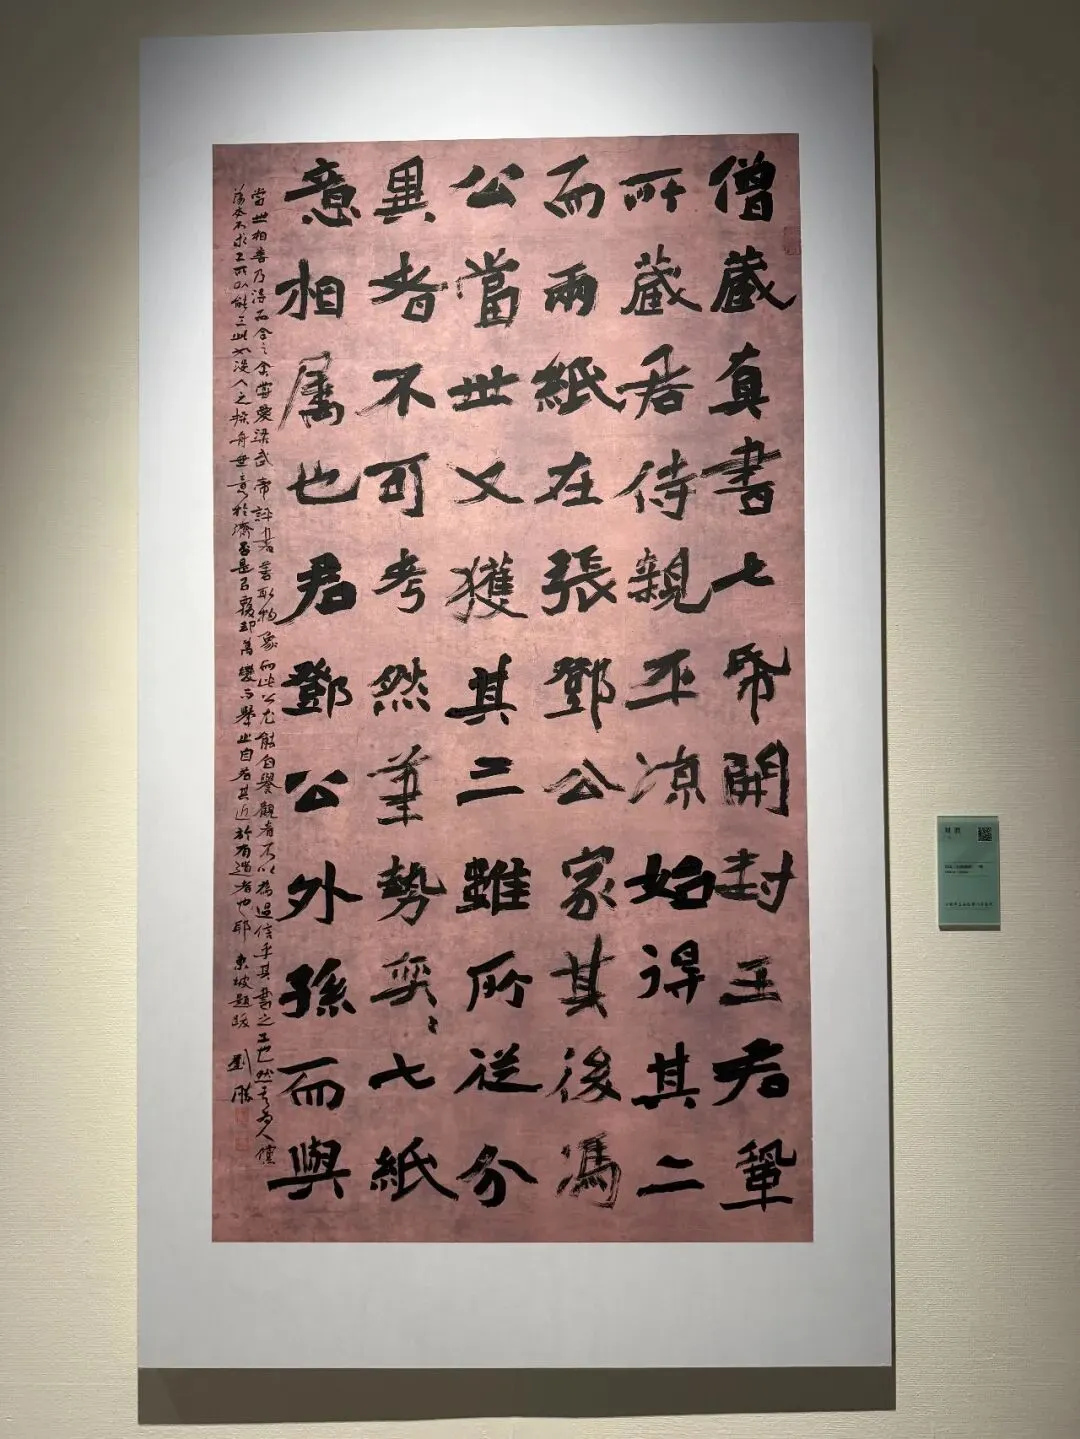 僧藏真書七帋開封王君鞏
所藏君侍親平涼始得其二
而兩紙在張鄧公家其後馮
公當世又獲其三雖所從分
異者不可考然筆勢奕〻七紙
意相屬也君鄧公外孫而與
當世相善乃得而合之余嘗愛梁武帝評書善取物象而此公尤能自譽觀者不以為過信乎其書之工也然其為人儻
蕩本不求工所以能工此如沒人之操舟無意於濟否是以覆却萬變而舉止自若其近於有道者也耶 東坡題跋 劉勝
刘 胜